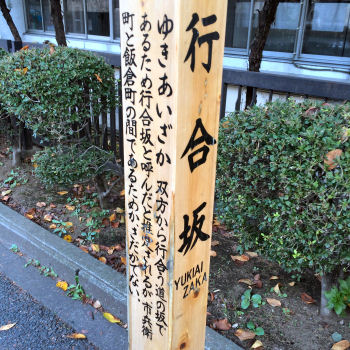 行合坂
YUKIAI
ZAKA
ゆきあいざか
双方から行合う道の坂で
あるため行合坂と呼んだと推定されるが市兵衛
町と飯倉町の間であるためかさだかでない。